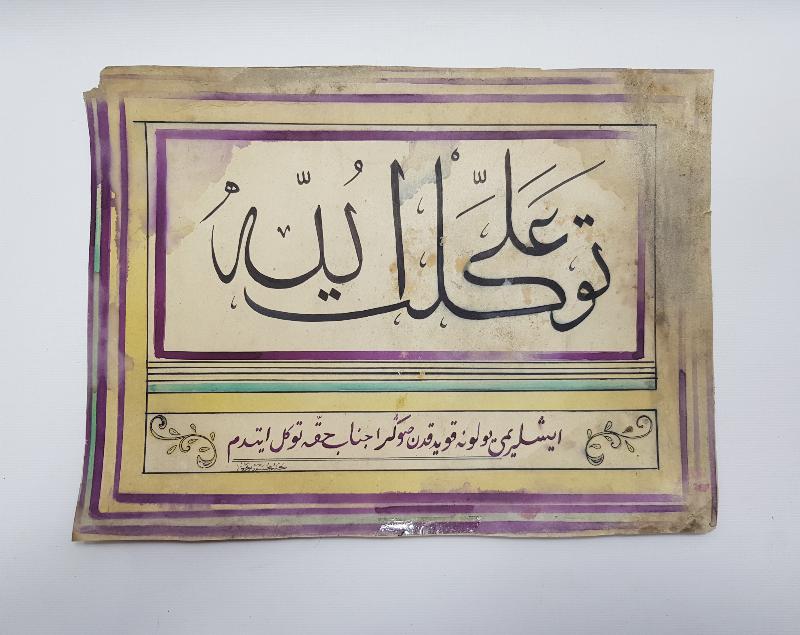 توكلت على الله
ايشلريمى يولونه قويدقدن صوڭرا جناب حقّه توكل ايتدم